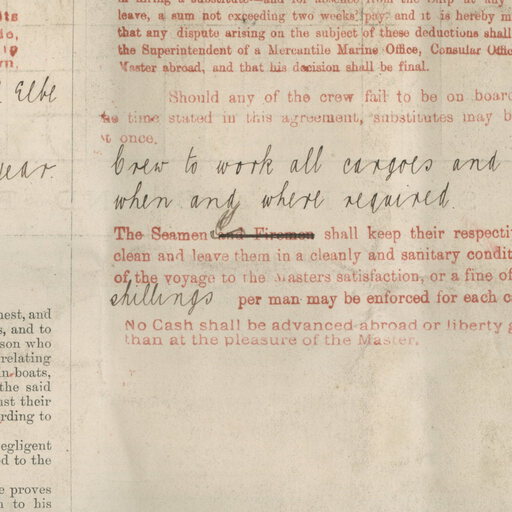 its
le,
ip
wn,
Elbe
year.
nest, and
s, and to
son who
relating
n boats,
the said
nst their
rding to
egligent
ed to the
e proves
n to his
leave, a sum not exceeding two weeks' pay and it is hereby m
that any dispute arising on the subject of these deductions shall
the Superintendent of a Mercantile Marine Office, Consular Offic
Master abroad, and that his decision shall be final.
Should any of the crew fail to be on boar
he time stated in this agreement, substitutes may b
at once.
Crew to work all cargoes and
when and where required.
The Seamen and Firemen shall keep their respecti
clean and leave them in a cleanly and sanitary condit
of the voyage to the Masters satisfaction, or a fine of
shillings per man may be enforced for each c
No Cash shall be advanced abroad or liberty g
than at the pleasure of the Master.